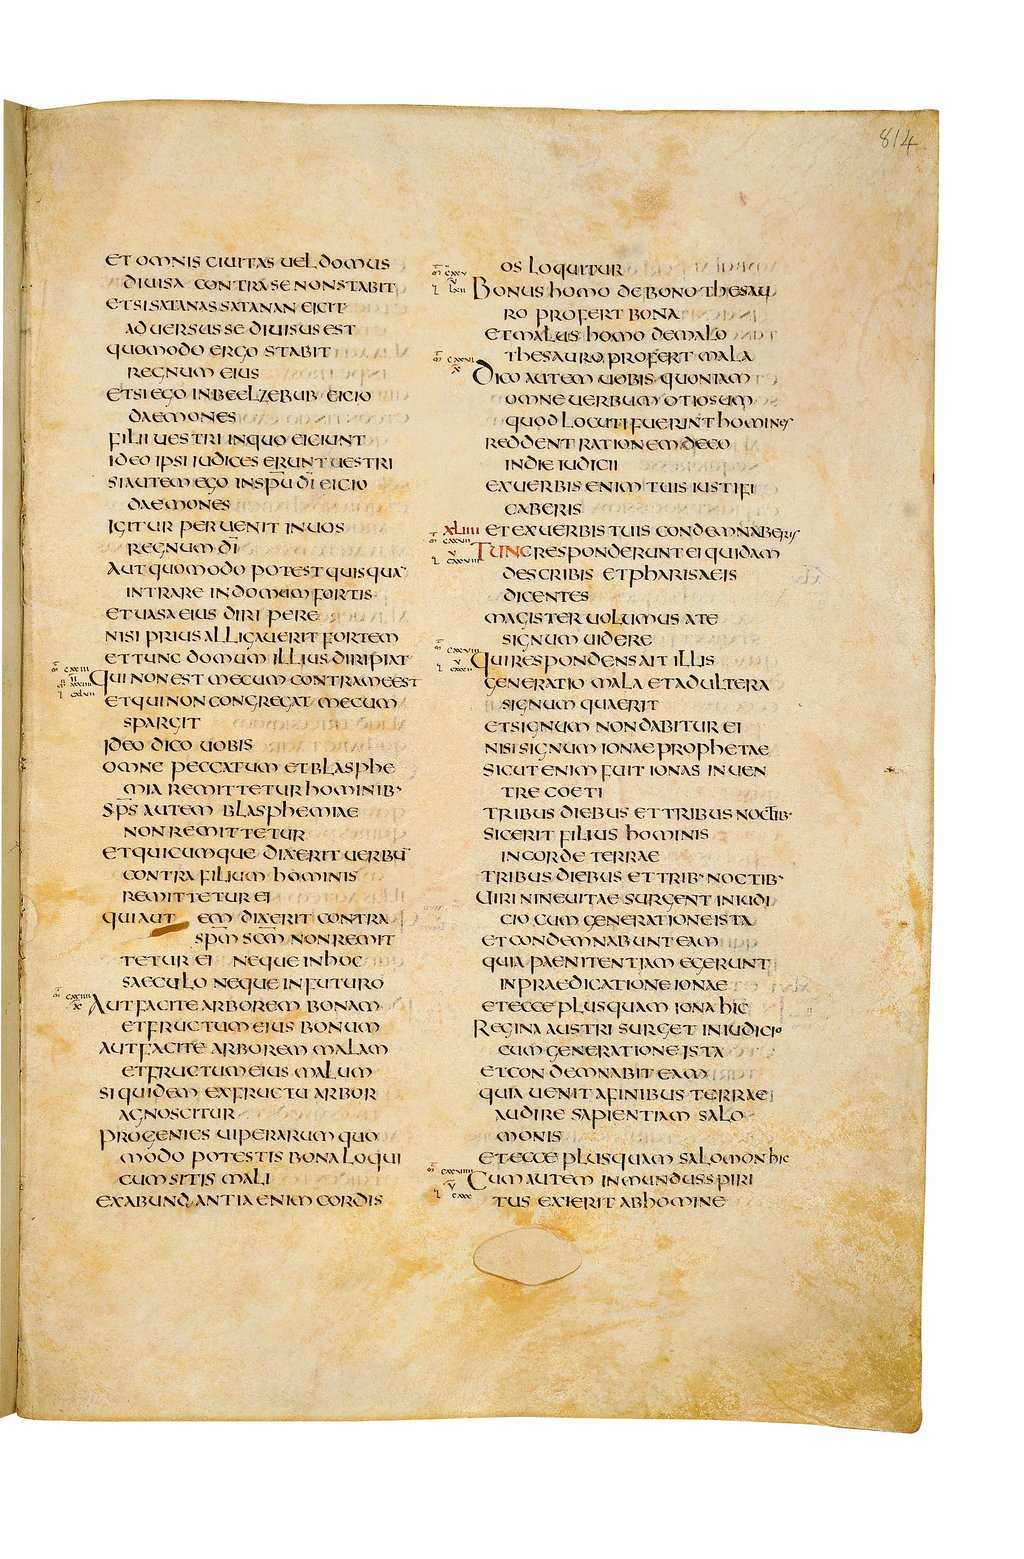 814
ET OMNIS CIUITAS UEL DOMUS
DIUISA CONTRA SE NON STABIT
ET SI SATANAS SATANAN EICIT
ADUERSUS SE DIUISUS EST
QUOMODO ERGO STABIT
REGNUM EIUS
ET SI EGO IN BEELZEBUB EICIO
DAEMONES
FILII UESTRI IN QUO EICIUNT
IDEO IPSI IUDICES ERUNT UESTRI
SI AUTEM EGO IN SPU DI EICIO
DAEMONES
IGITUR PERUENIT IN UOS
REGNUM DI
AUT QUOMODO POTEST QUISQUA̅
INTRARE IN DOMUM FORTIS
ET UASA EIUS DIRIPERE
NISI PRIUS ALLIGAUERIT FORTEM
ET TUNC DOMUM ILLIUS DIRIPIAT
QUI NON EST MECUM CONTRA ME EST
ET QUI NON CONGREGAT MECUM
SPARGIT
IDEO DICO UOBIS
OMNE PECCATUM ET BLASPHE
MIA REMITTETUR HOMINIB·
SPS AUTEM BLASPHEMIAE
NON REMITTETUR
ET QUICUMQUE DIXERIT UERBU̅
CONTRA FILIUM HOMINIS
REMITTETUR EI
QUI AUT EM DIXERIT CONTRA
SPM SCM NON REMIT
TETUR EI NEQUE IN HOC
SAECULO NEQUE IN FUTURO
AUT FACITE ARBOREM BONAM
ET FRUCTUM EIUS BONUM
AUT FACITE ARBOREM MALAM
ET FRUCTUM EIUS MALUM
SI QUIDEM EX FRUCTU ARBOR
AGNOSCITUR
PROGENIES UIPERARUM QUO
MODO POTESTIS BONA LOQUI
CUM SITIS MALI
EX ABUNDANTIA ENIM CORDIS
OS LOQUITUR
BONUS HOMO DE BONO THESAU
RO PROFERT BONA
ET MALUS HOMO DE MALO
THESAURO PROFERT MALA
DICO AUTEM UOBIS QUONIAM
OMNE UERBUM OTIOSUM
QUOD LOCUTI FUERINT HOMINES
REDDENT RATIONEM DE EO
IN DIE IUDICII
EX UERBIS ENIM TUIS IUSTIFI
CABERIS
XLIIII ET EX UERBIS TUIS CONDEMNABERIS
TUNC RESPONDERUNT EI QUIDAM
DE SCRIBIS ET PHARISAEIS
DICENTES
MAGISTER UOLUMUS A TE
SIGNUM UIDERE
QUI RESPONDENS AIT ILLIS
GENERATIO MALA ET ADULTERA
SIGNUM QUAERIT
ET SIGNUM NON DABITUR EI
NISI SIGNUM IONAE PROPHETAE
SICUT ENIM FUIT IONAS IN UEN
TRE COETI
TRIBUS DIEBUS ET TRIBUS NOCTIB·
SIC ERIT FILIUS HOMINIS
IN CORDE TERRAE
TRIBUS DIEBUS ET TRIB· NOCTIB·
UIRI NINEUITAE SURGENT IN IUDI
CIO CUM GENERATIONE ISTA
ET CONDEMNABUNT EAM
QUIA PAENITENTIAM EGERUNT
IN PRAEDICATIONE IONAE
ET ECCE PLUS QUAM IONA HIC
REGINA AUSTRI SURGET IN IUDICIO
CUM GENERATIONE ISTA
ET CONDEMNABIT EAM
QUIA UENIT A FINIBUS TERRAE
AUDIRE SAPIENTIAM SALO
MONIS
ET ECCE PLUS QUAM SALOMON HIC
CUM AUTEM INMUNDUS SPIRI
TUS EXIERIT AB HOMINE